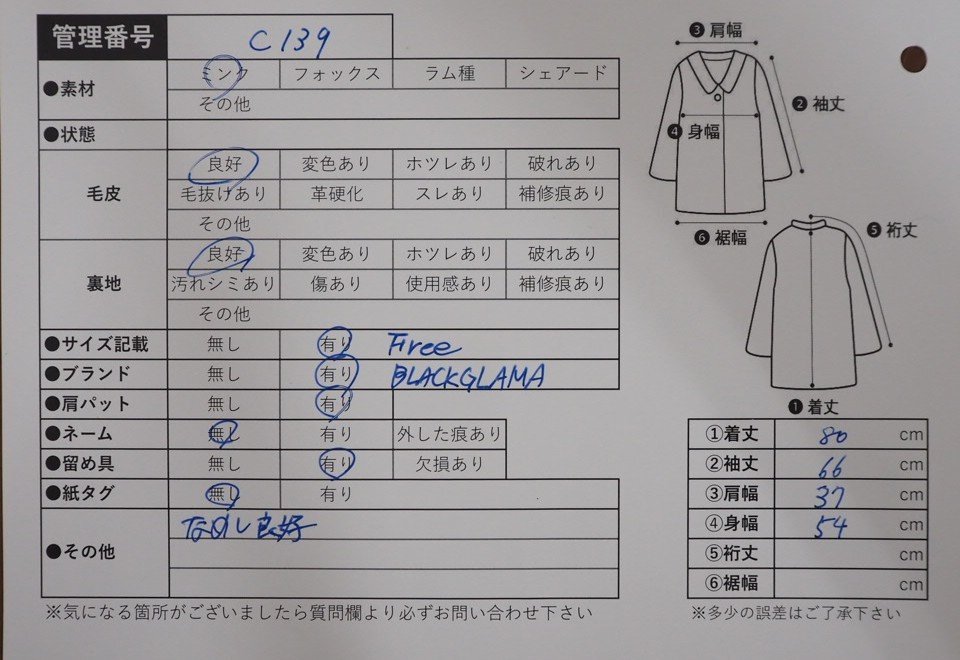 管理番号 C139
●素材 ミンク フォックス ラム種 シェアード
その他
●状態
毛皮 良好 変色あり ホツレあり 破れあり
毛抜けあり 革硬化 スレあり 補修痕あり
その他
裏地 良好 変色あり ホツレあり 破れあり
汚れシミあり 傷あり 使用感あり 補修痕あり
その他
●サイズ記載 無し 有り Free
●ブランド 無し 有り BLACKGLAMA
●肩パット 無し 有り
●ネーム 無し 有り 外した痕あり
●留め具 無し 有り 欠損あり
●紙タグ 無し 有り
●その他 なめし良好
※気になる箇所がございましたら質問欄より必ずお問い合わせ下さい
❸肩幅
❷袖丈
❹身幅
❻裾幅
❺裄丈
❶着丈
①着丈 80 cm
②袖丈 66 cm
③肩幅 37 cm
④身幅 54 cm
⑤裄丈 cm
⑥裾幅 cm
※多少の誤差はご了承下さい